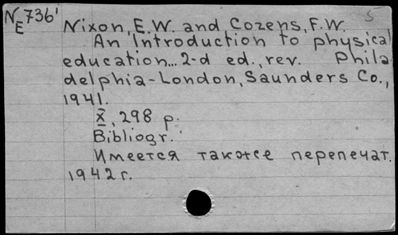 N736'
E
5
Nixon, E.W. and Cozens, F.W.
An Introduction to physical
education... 2-d ed., rev. Phila
delphia-London, Saunders Co.,
1941.
X, 298 p.
Bibliogr.
Имеется также перепечат.
1942 г.